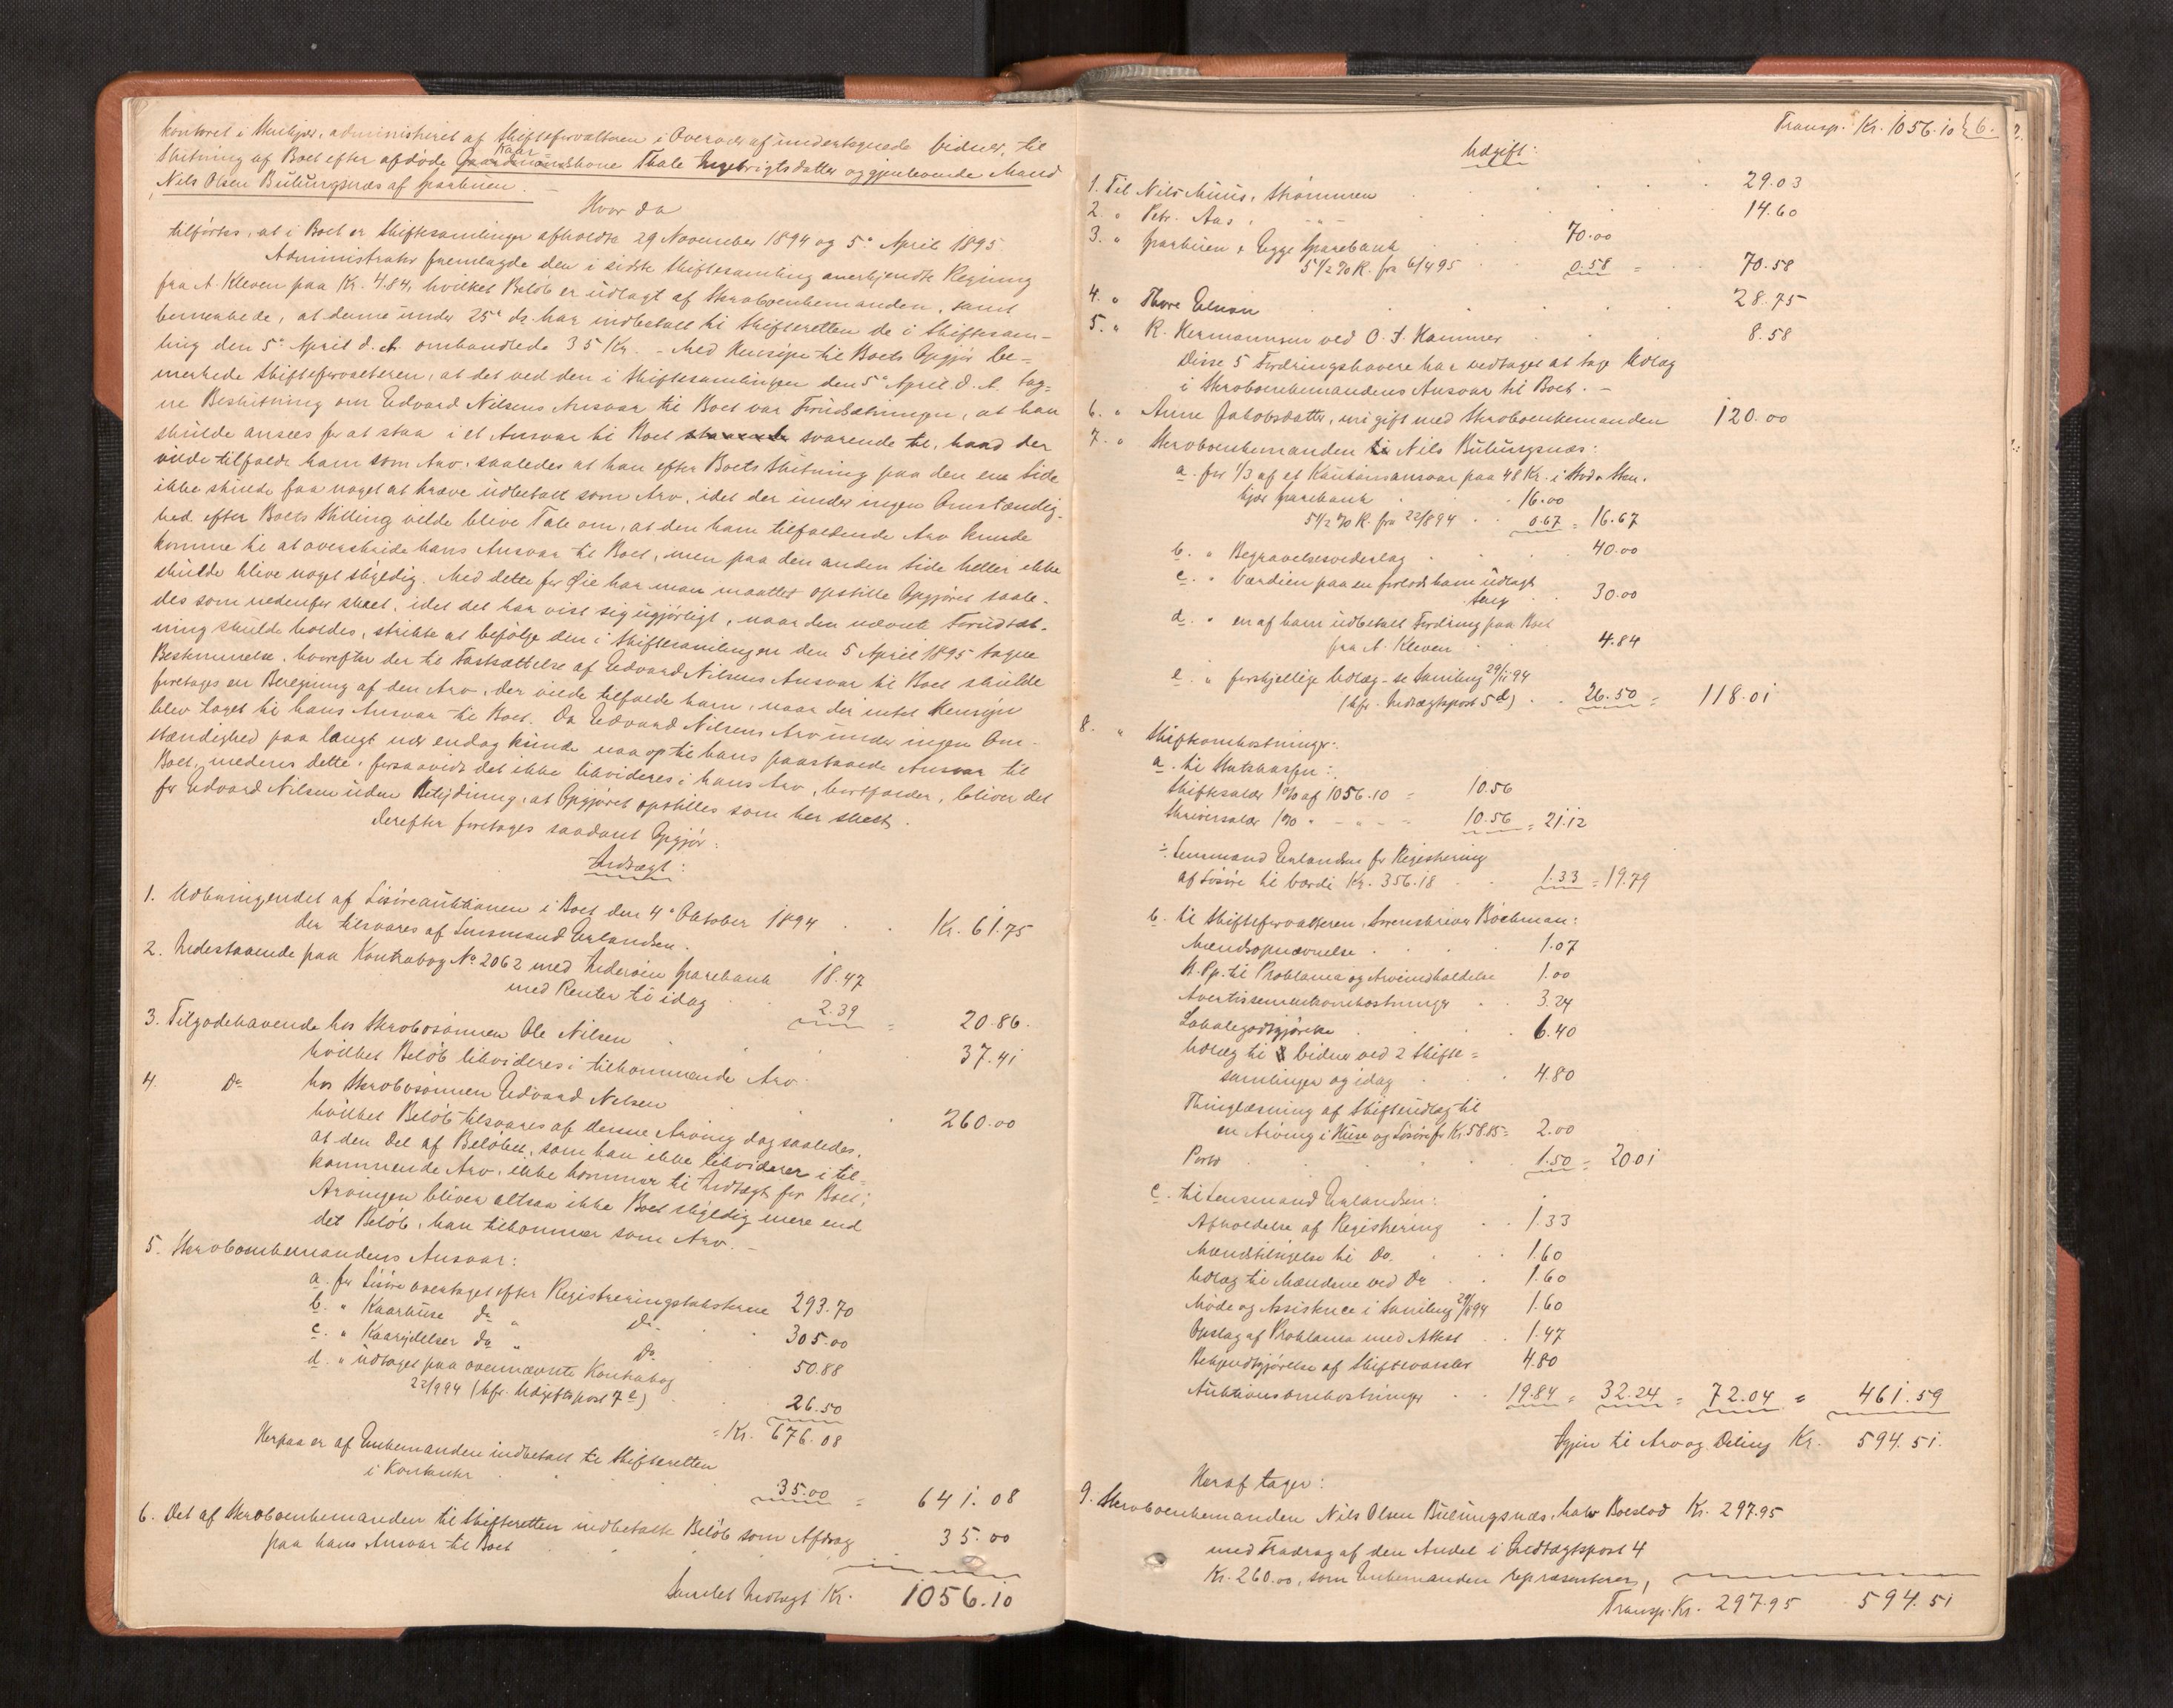 kontoret i Stenkjær, administreret af Skifteforvalteren i Overvær af undertegnede Vidner, til
Slutning af Boet efter afdøde Gaardmandskone Kaar= Thale Ingebrigtsdatter og gjenlevende Mand
Nils Olsen Bulungsnæs af Sparbuen. —
Hvor da
tilførtes, at i Boet er Skiftesamlinger afholdte 29 November 1894 og 5. April 1895
Administrator fremlagde den i sidste Skiftesamling anerkjendte Regning
fra A. Kleven paa Kr. 4.84, hvilket Beløb er udlagt af Skrøboenkemanden, samt
bemærkede, at denne under 25. ds. har indbetalt til Skifteretten de i Skiftesam-
ling den 5. April d. A. omhandlede 35 Kr. – Med Hensyn til Boets Opgjør be=
mærkede Skifteforvalteren, at det ved den i Skiftesamlingen den 5. April d. A. tag=
ne Beslutning om Edvard Nilsens Ansvar til Boet var Forudsætningen, at han
skulde ansees for at staa i et Ansvar til Boet svarende til, hvad der
vilde tilfalde ham som Arv, saaledes at han efter Boets Slutning paa den ene Side
ikke skulde faa noget at kræve udbetalt som Arv, idet der under ingen Omstændig-
hed efter Boets Stilling vilde blive Tale om, at den ham tilfaldende Arv kunde
komme til at overskride hans Ansvar til Boet, men paa den anden Side heller ikke
skulde blive noget skyldig. Med dette for Øie har man maattet opstille Opgjøret saale-
des som nedenfor skeet, idet det har vist sig ugjørligt, naar den nævnte Forudsæt-
ning skulde holdes, strikte at befølge den i Skiftesamlingen den 5 April 1895 tagne
Bestemmelse, hvorefter der til Fastsættelse af Edvard Nilsens Ansvar til Boet skulde
foretages en Beregning af den Arv, der vilde tilfalde ham, naar der intet Hensyn
blev taget til hans Ansvar til Boet. Da Edvard Nilsens Arv under ingen Om-
stændighed paa langt nær endog kunde naa op til hans paastaaede Ansvar til
Boet, medens dette, forsaavidt det ikke likvideres i hans Arv, bortfalder, bliver det
for Edvard Nilsen uden Betydning, at Opgjøret opstilles som her skeet.
Derefter foretages saadant Opgjør:
Indtægt:
1. Udbringendet af Løsøreauktionen i Boet den 4. Oktober 1894 . . Kr. 61.75
der tilsvares af Lensmand Erlandsen.
2. Indestaaende paa Kontrabog No 2062 med Inderøen Sparebank 18.47
med Renter til idag . . 2.39 = 20.86.
3. Tilgodehavende hos Skrøbosønnen Ole Nilsen . . . 37.41
hvilket Beløb likvideres i tilkommende Arv.
4. Do hos Skrøbosønnen Edvard Nilsen . . 260.00
hvilket Beløb tilsvares af denne Arving dog saaledes,
at den Del af Beløbet, som han ikke likviderer i til=
kommende Arv, ikke kommer til Indtægt for Boet;
Arvingen bliver altsaa ikke Boet skyldig mere end
det Beløb, han tilkommer som Arv. —
5. Skrøboenkemandens Ansvar:
a. for Løsøre overtaget efter Registreringstaksterne 293.70
b. " Kaarhuse do " do . 305.00
c. " Kaarydelser do " Do . 50.88
d. " udtaget paa ovennævnte Kontrabog
22/9 94 (kfr. Udgiftspost 7e) . . 26.50
= Kr. 676.08
Herpaa er af Enkemanden indbetalt til Skifteretten
i Kontanter . . . 35.00 = 641.08
6. Det af Skrøboenkemanden til Skifteretten indbetalte Beløb som Afdrag
paa hans Ansvar til Boet . . . 35.00
Samlet Indtægt Kr. 1056.10
Transp. Kr. 1056.10 6.
Udgift:
1. Til Nils Muus, Strømmen . . . 29.03
2. " Petr. Aas, – " – . . 14.60
3. " Sparbuen & Egge Sparebank . . 70.00
5 1/2 % R. fra 6/4 95 . . 0.58 = . . 70.58
4. " Thore Elnan . . . 28.75
5. " K. Hermannsen ved O. J. Hammer . . 8.58
Disse 5 Fordringshavere har vedtaget at tage Udlæg
i Skrøboenkemandens Ansvar til Boet. –
6. " Anne Jakobsdatter, nu gift med Skrøboenkemanden 120.00
7. " Skrøboenkemanden Nils Bulungsnæs:
a. for 1/3 af et Kautionsansvar paa 48 Kr. i Stod & Sten-
kjær Sparebank . . 16.00
5 1/2 % R. fra 22/8 94 . . 0.67 = 16.67
b. " Begravelsesvederlag . . . 40.00
c. " Værdien paa en forlods ham udlagt
Seng . . 30.00
d. " en af ham udbetalt Fordring paa Boet
fra A. Kleven . . 4.84
e. " forskjellige Udlæg – se Samling 29/11 94
(kfr. Indtægtspost 5 d) . . 26.50 = 118.01
8. " Skifteomkostninger:
a. til Statskassen:
Skiftesalær 1% af 1056.10 = 10.56
Skriversalær 1% " – " – 10.56 = 21.12
÷ Lensmand Erlandsen for Registrering
af Løsøre til Værdi Kr. 356.18 . . 1.33 = 19.79
b. til Skifteforvalteren, Sorenskriver Bøckman:
Mændsopnævnelse . . . 1.07
St. Pp. til Proklama og Arveindkaldelse 1.00
Avertissementsomkostninger . . 3.24
Lokalegodtgjørelse . . . 6.40
Udlæg til Vidner ved 2 Skifte=
samlinger og idag . . 4.80
Thinglæsning af Skifteudlæg til
en Arving i Huse og Løsøre for Kr. 58.85 = 2.00
Porto . . . 1.50 = 20.01
c. til Lensmand Erlandsen:
Afholdelse af Registrering . . 1.33
Mændstilsigelse til Do. . . 1.60
Udlæg til Mændene ved Do . . 1.60
Møde og Assistence i Samling 29/11 94 1.60
Opslag af Proklama med Attest . . 1.47
Bekjendtgjørelse af Skiftevarsler 4.80
Auktionsomkostninger . . 19.84 = 32.24 = 72.04 = 461.59
Igjen til Arv og Deling Kr. 594.51.
Heraf tager:
9. Skrøboenkemanden Nils Olsen Bulungsnæs, halv Boeslod Kr. 297.95
med Fradrag af den Andel i Indtægtspost 4
Kr. 260.00, som Enkemanden repræsenterer,
Transp. Kr. 297.95 594.51